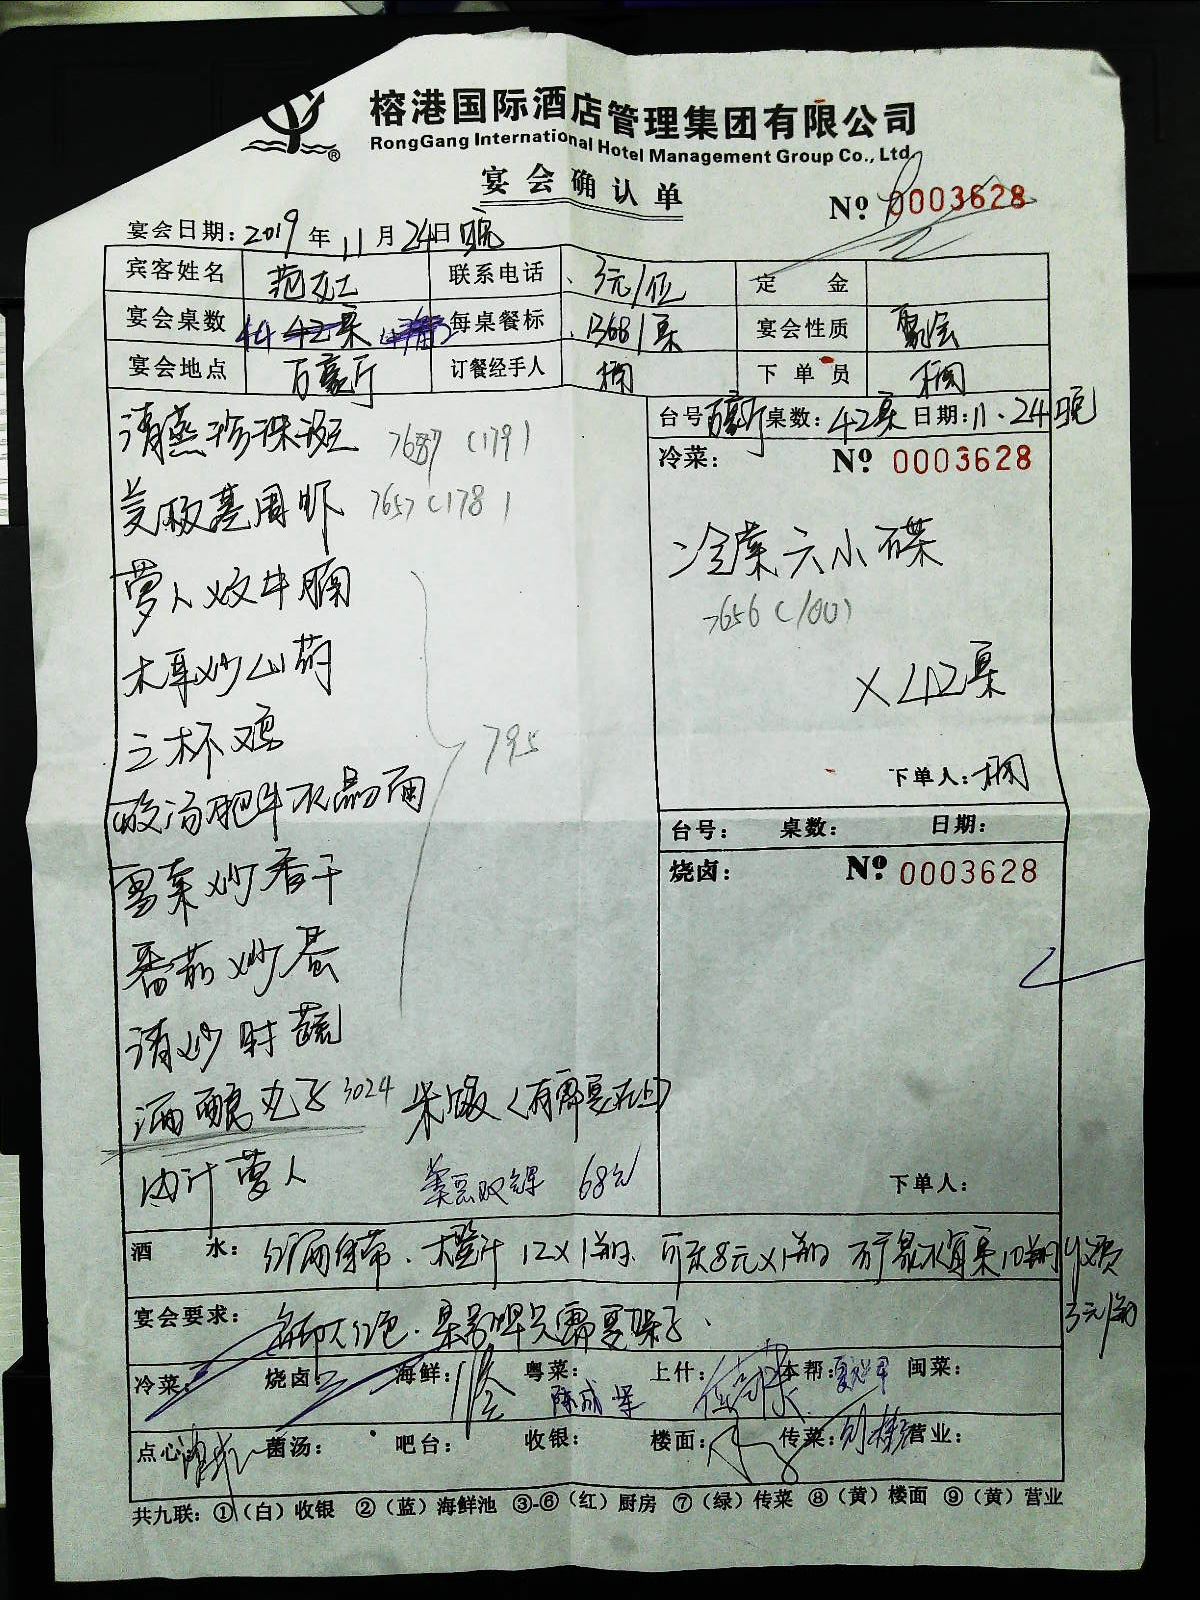 榕港国际酒店管理集团有限公司
RongGang International Hotel Management Group Co., Ltd
宴会确认单
№ 0003628
宴会日期: 2019 年 11 月 24 日 晚
宾客姓名 范女士 联系电话 3元/位 定金
宴会桌数 44 42桌 每桌餐标 1368/桌 宴会性质 宴会
宴会地点 万豪厅 订餐经手人 下单员
台号 万豪厅 桌数: 42桌 日期: 11.24晚
冷菜: № 0003628
冷菜六小碟
7656 (100)
×42桌
下单人:
清蒸珍珠斑 7687 (179)
美极基围虾 7657 (178)
萝卜炆牛腩
木耳炒山药
三杯鸡
酸汤肥牛水晶面
795
雪菜炒香干
番茄炒蛋
清炒时蔬
酒酿丸子 3024 米饭(有需要在上)
肉汁萝卜 68元
台号: 桌数: 日期:
烧卤: № 0003628
下单人:
酒水: 红酒自带. 大橙汁 12×1瓶 可乐8元×1瓶 矿泉水每桌10瓶 收费
3元/瓶
宴会要求: 桌号牌只需要架子.
冷菜: 烧卤: 海鲜: 粤菜: 上什: 本帮: 闽菜:
点心: 菌汤: 吧台: 收银: 楼面: 传菜: 营业:
共九联: ①(白)收银 ②(蓝)海鲜池 ③-⑥(红)厨房 ⑦(绿)传菜 ⑧(黄)楼面 ⑨(黄)营业